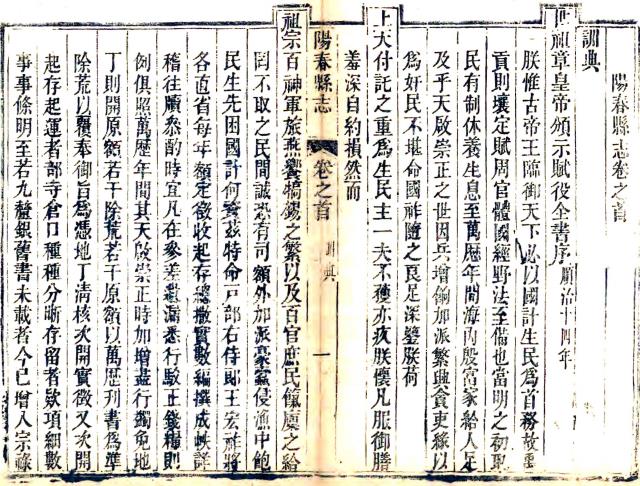 陽春縣志卷之首
訓典
世祖章皇帝頒示賦役全書序 順治十四年
朕惟古帝王臨御天下必以國計生民為首務故禹
貢則壤定賦周官體國經野法至備也當明之初取
民有制休養生息至萬曆年間海內殷富家給人足
及乎天啟崇正之世因兵增餉加派繁興貪吏緣以
為奸民不堪命國祚隨之良足深鑒朕荷
上天付託之重為生民主一夫不獲亦疚朕懷凡服御膳
羞深自約損然而
陽春縣志 卷之首 訓典 一
祖宗百神軍旅燕饗犒錫之繁以及百官庶民餼廩之給
罔不取之民間誠恐有司額外加派豪蠹侵漁中飽
民生先困國計何資茲特命戶部右侍郎王宏祚將
各直省每年額定徵收起存總撒實數編撰成帙詳
稽往牘參酌時宜凡在參差遺漏悉行駁正錢糧則
例俱照萬曆年間其天啟崇正時加增盡行蠲免地
丁則開原額若干除荒若干原額以萬曆刊書為準
除荒以覆奉御旨為憑地丁清核次開實徵又次開
起存起運者部寺倉口種種分晰存留者款項細數
事事條明至若九釐銀舊書未載者今已增入宗祿